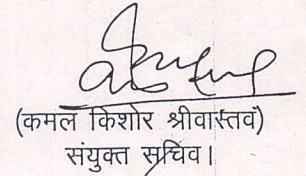 (कमल किशोर श्रीवास्तव)
संयुक्त सचिव।